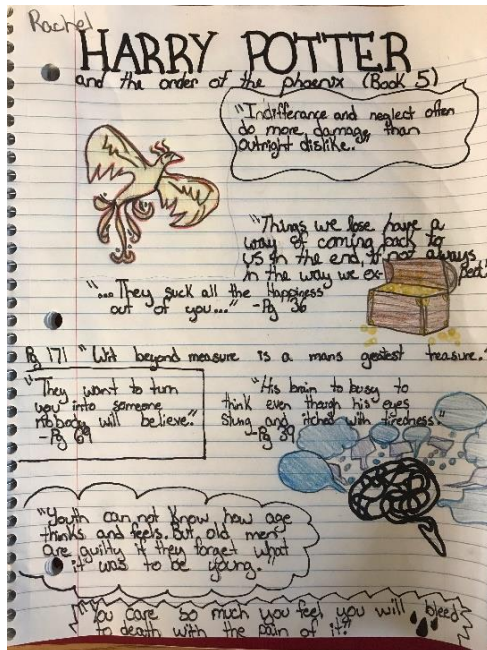 Rachel
HARRY POTTER
and the order of the phoenix (Book 5)
"Indifferance and neglect often
do more damage than
outright dislike."
"Things we lose have a
way of coming back to
us in the end, if not always
in the way we ex- pect"
"...They suck all the Happiness
out of you..." -Pg 36
Pg 171 "Wit beyond measure is a mans geatest treasure."
"They want to turn
you into someone
nobody will believe."
-Pg 69
"His brain to busy to
think even though his eyes
stung and itched with tiredness."
-Pg 39
"Youth can not know how age
thinks and feels. But old men
are guilty if they forget what
it was to be young."
"You care so much you feel you will bleed
to death with the pain of it."